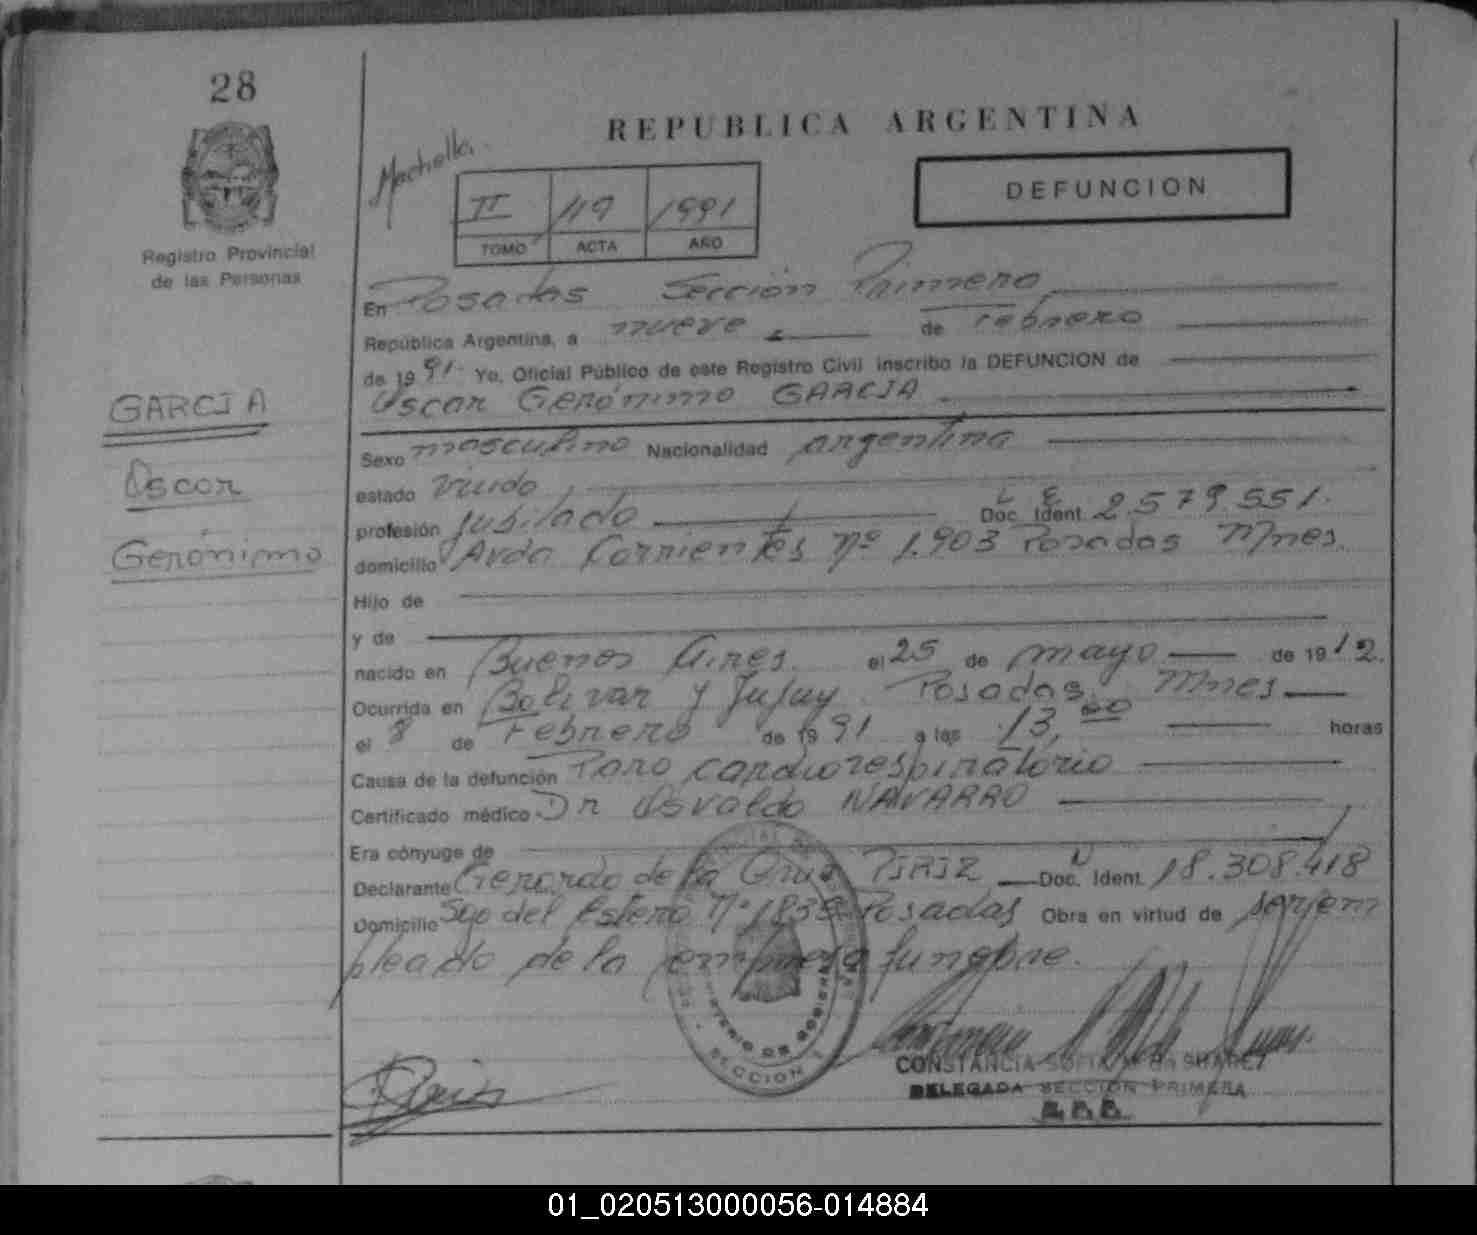 28
Registro Provincial
de las Personas
GARCIA
Oscar
Gerónimo
REPUBLICA ARGENTINA
DEFUNCION
II 119 1991
TOMO ACTA AÑO
En Posadas Sección Primera
República Argentina, a nueve de Febrero
de 1991 Yo, Oficial Público de este Registro Civil inscribo la DEFUNCION de
Oscar Gerónimo GARCIA
Sexo masculino Nacionalidad argentina
estado viudo
profesión jubilado L E Doc. Ident. 2.579.551.
domicilio Avda Corrientes Nº 1.903 Posadas Mnes.
Hijo de
y de
nacido en Buenos Aires el 25 de mayo de 1912.
Ocurrida en Bolivar y Jujuy Posadas Mnes
el 8 de Febrero de 1991 a las 13,00 horas
Causa de la defunción Paro cardiorespiratorio
Certificado médico Dr Osvaldo NAVARRO
Era cónyuge de
Declarante Gerardo de la Cruz PIRIZ Doc. Ident. 18.308.418
Domicilio Sgo del Estero Nº 1835 Posadas Obra en virtud de ser em
pleado de la empresa funebre.
MINISTERIO DE GOBIERNO
SECCION 1
CONSTANCIA SOFIA
DELEGADA SECCION PRIMERA
01_020513000056-014884